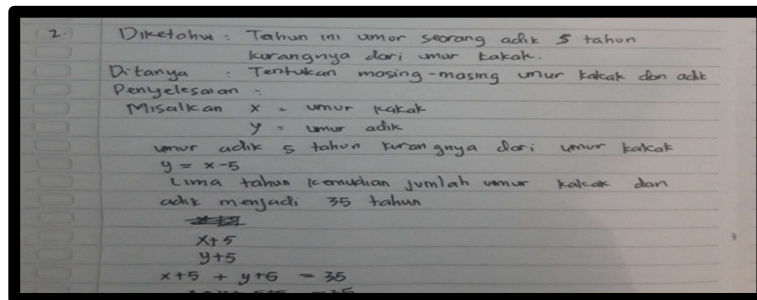 2. Diketahui : Tahun ini umur seorang adik 5 tahun
kurangnya dari umur kakak.
Ditanya : Tentukan masing-masing umur kakak dan adik
Penyelesaian :
Misalkan x = umur kakak
y = umur adik
umur adik 5 tahun kurangnya dari umur kakak
y = x-5
Lima tahun kemudian jumlah umur kakak dan
adik menjadi 35 tahun
x+5
y+5
x+5 + y+5 = 35